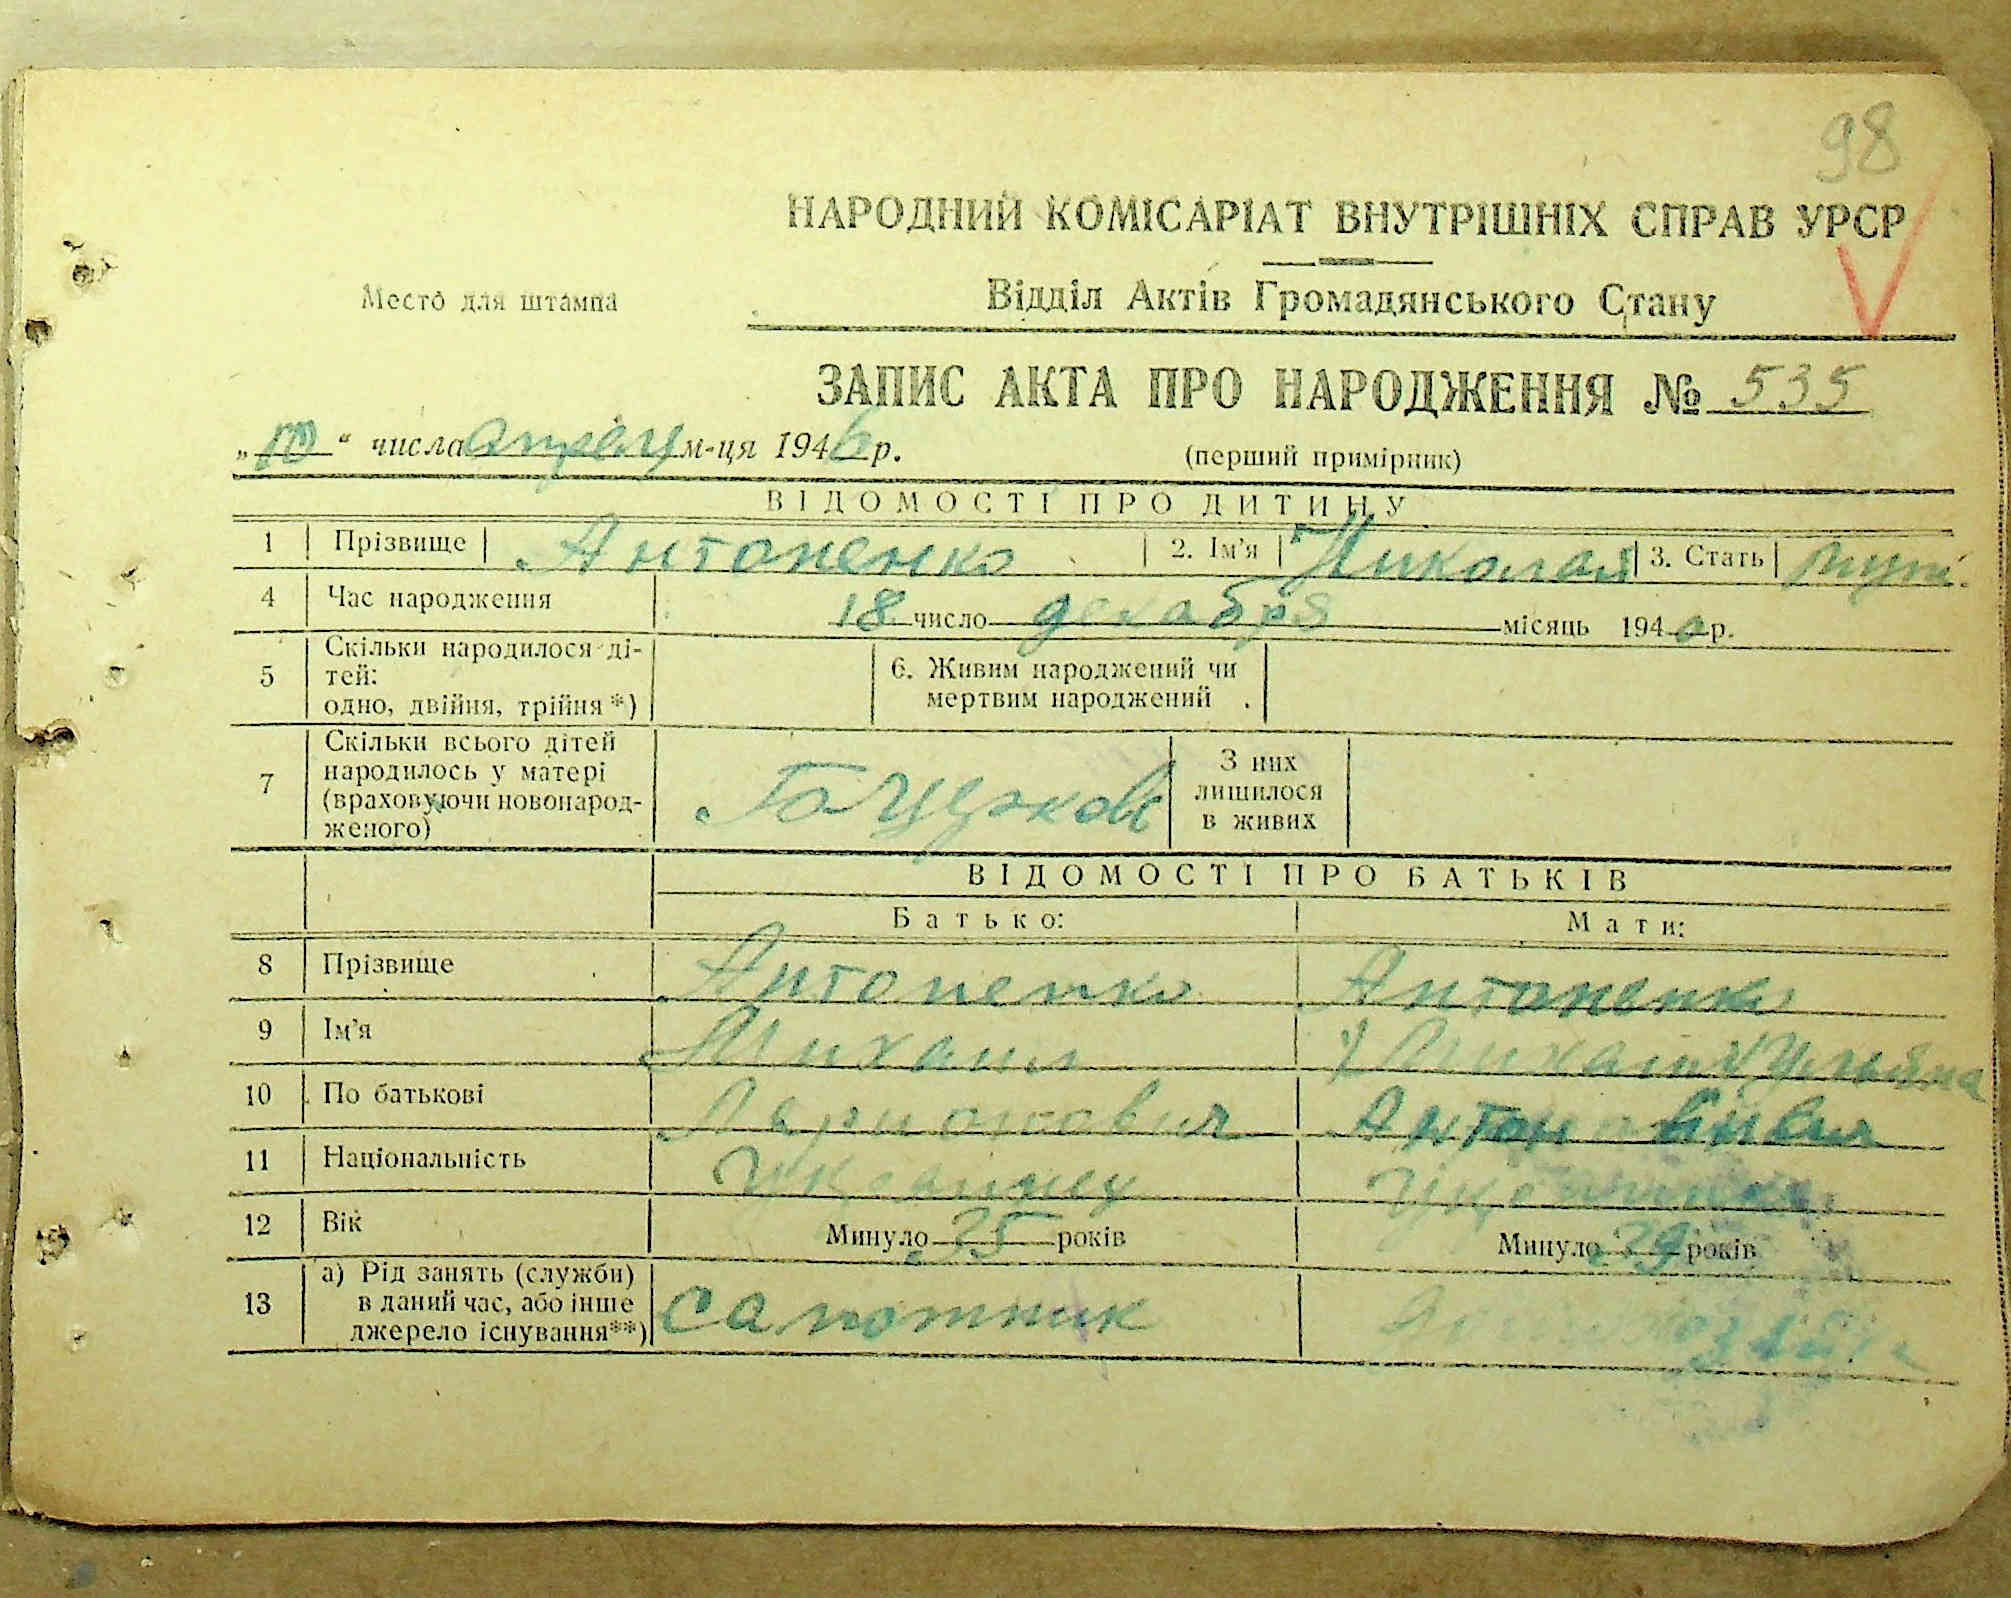 98
НАРОДНИЙ КОМІСАРІАТ ВНУТРІШНІХ СПРАВ УРСР
Место для штампа
Відділ Актів Громадянського Стану
ЗАПИС АКТА ПРО НАРОДЖЕННЯ № 535
числа м-ця 1946 р.
(перший примірник)
ВІДОМОСТІ ПРО ДИТИНУ
1 Прізвище Антоненко 2. Ім'я Николай 3. Стать
4 Час народження 18 число декабря місяць 1940 р.
5 Скільки народилося дітей: одно, двійня, трійня *) 6. Живим народжений чи мертвим народжений
7 Скільки всього дітей народилось у матері (враховуючи новонародженого) З них лишилося в живих
ВІДОМОСТІ ПРО БАТЬКІВ
Батько: Мати:
8 Прізвище Антоненко Антоненко
9 Ім'я Михаил
10 По батькові
11 Національність Украинец Украинка
12 Вік Минуло 35 років Минуло 29 років
13 а) Рід занять (служби) в даний час, або інше джерело існування**) сапожник